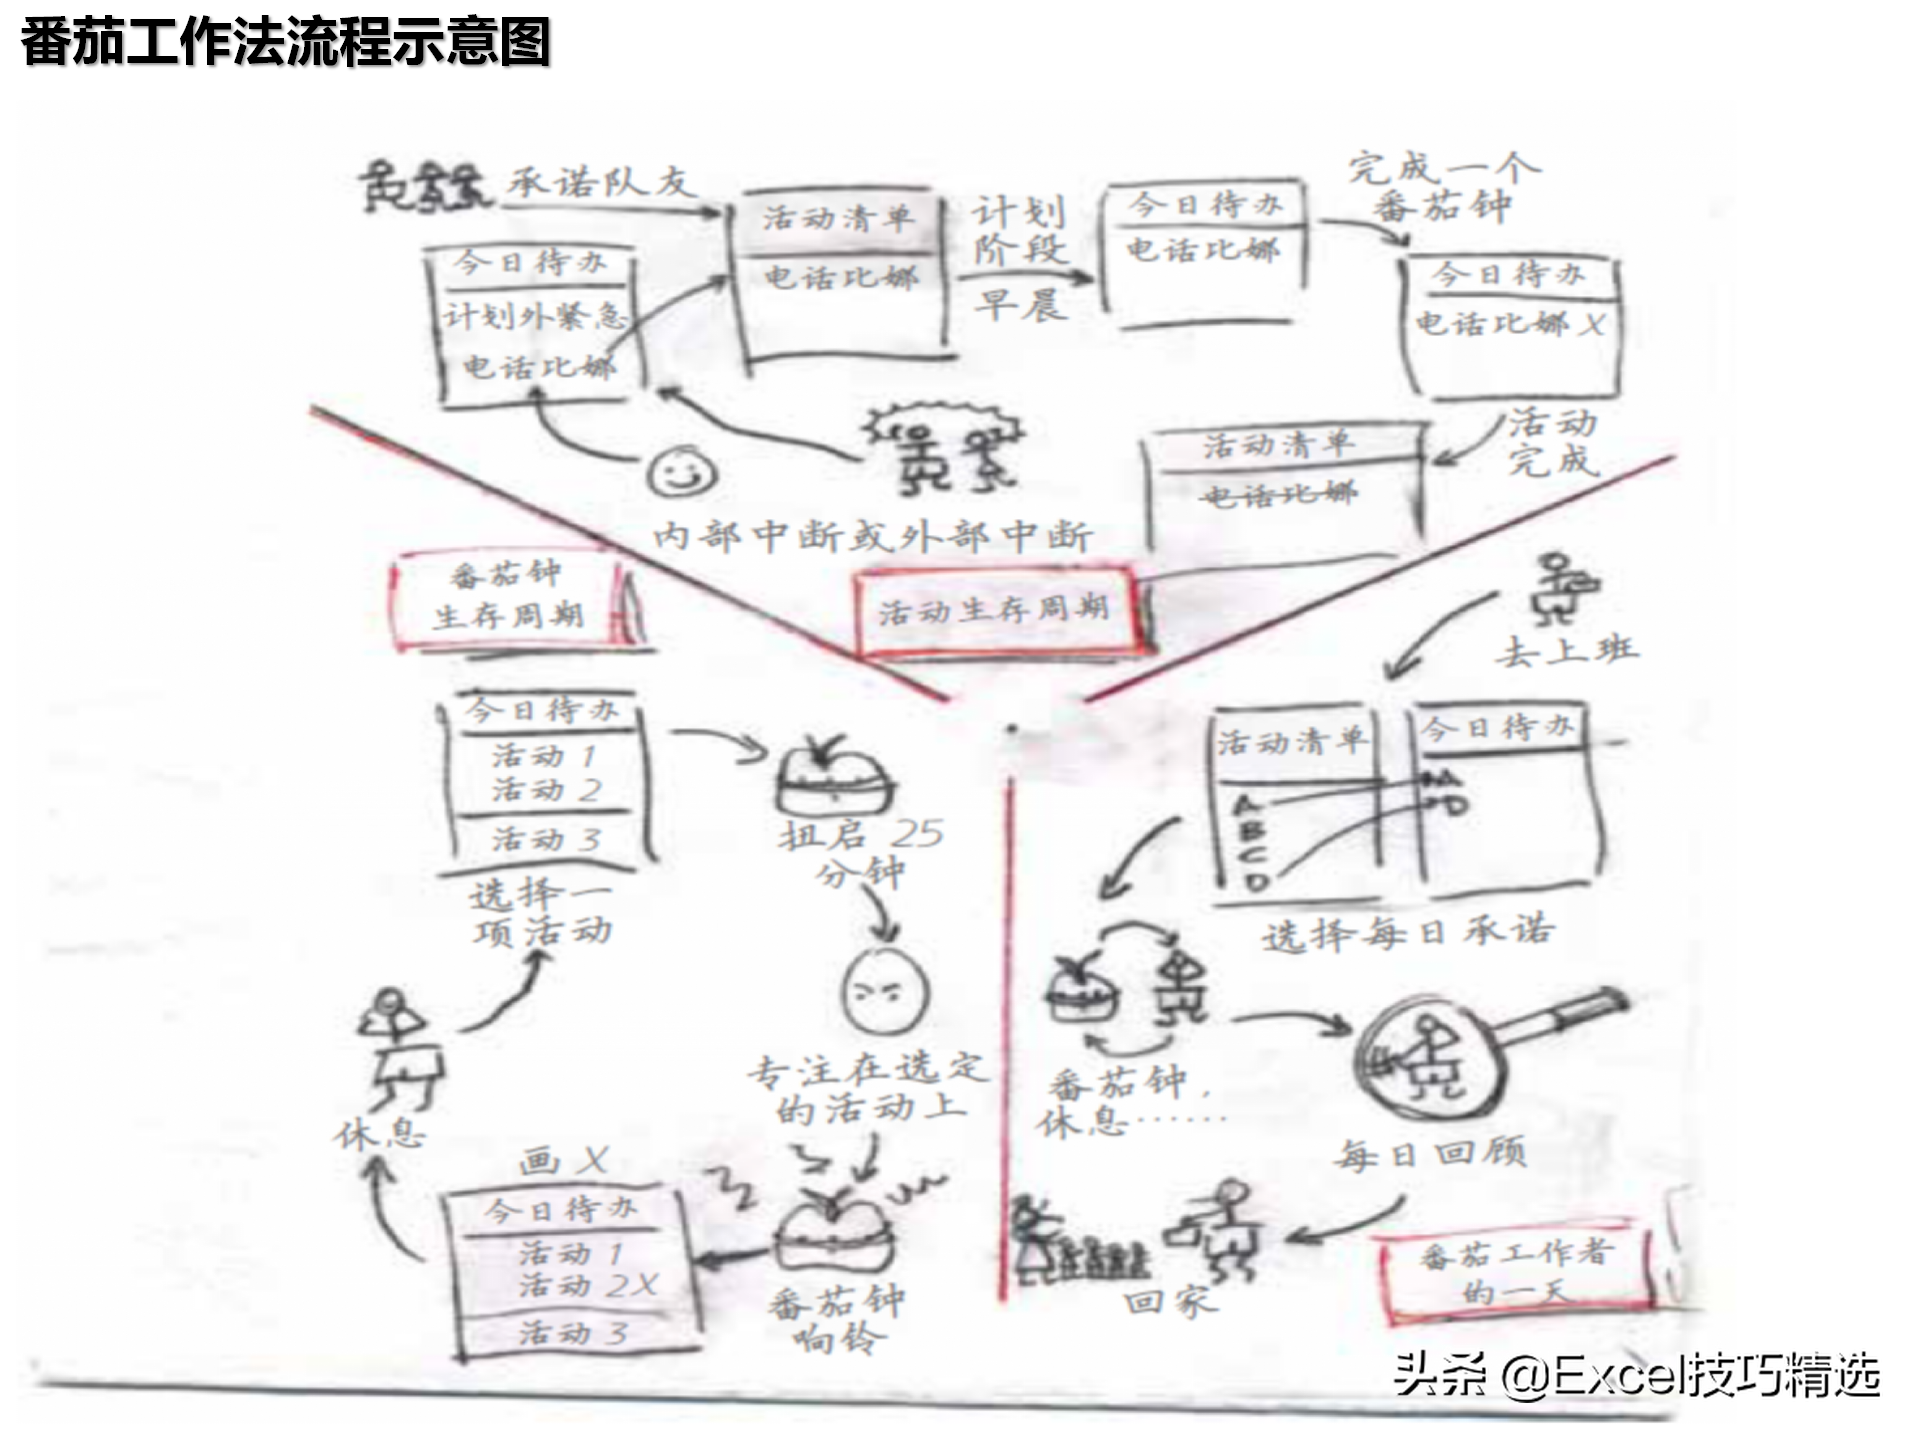 番茄工作法流程示意图
承诺队友
活动清单
电话比娜
计划
阶段
早晨
今日待办
电话比娜
完成一个
番茄钟
今日待办
电话比娜 X
今日待办
计划外紧急
电话比娜
活动
完成
活动清单
电话比娜
内部中断或外部中断
活动生存周期
番茄钟
生存周期
今日待办
活动 1
活动 2
活动 3
选择一
项活动
扭启 25
分钟
专注在选定
的活动上
番茄钟
响铃
画 X
今日待办
活动 1
活动 2X
活动 3
休息
去上班
活动清单
A
B
C
D
今日待办
A
D
选择每日承诺
番茄钟，
休息……
每日回顾
回家
番茄工作者
的一天
头条 @Excel技巧精选